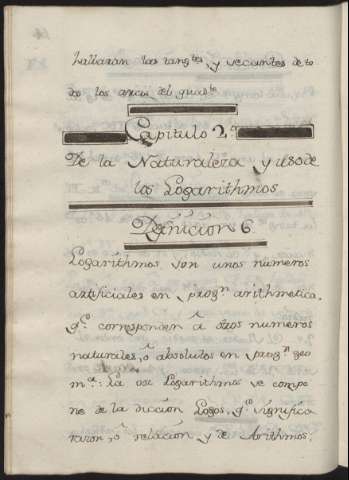 hallaràn las tang.tes, y secantes de to
dos los arcos del quad.te
Capitulo 2.º
De la Naturaleza y uso de
los Logarithmos
Definición 6.
Logaríthmos son unos números
artificiales en prog.n arithmetica,
q.e corresponden â otros numeros
naturales, ô absolutos en prog.n geo
m.ca: la voz Logarithmos se compo
ne de la dicción Logos, q.e significa
razon, ô relación, y de Arithmos,